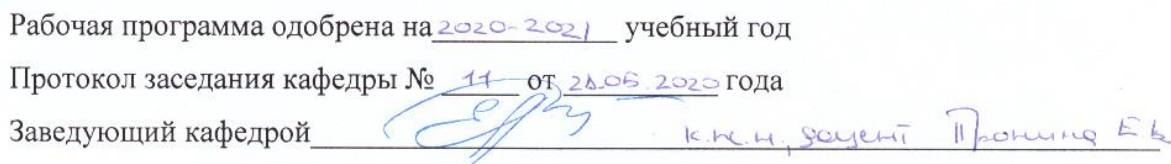 Рабочая программа одобрена на 2020-2021 учебный год
Протокол заседания кафедры № 11 от 2020 года
Заведующий кафедрой доцент Пронина Е В